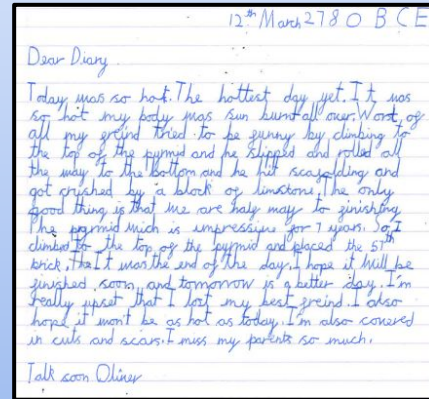 12th March 2780 BCE
Dear Diary
Today was so hot. The hottest day yet. It was
so hot my body was sun burnt all over. Worst of
all my greind tried to be gunny by climbing to
the top of the pyrmid and he slipped and rolled all
the way to the bottom and he hit scagolding and
got crushed by a block of limstone. The only
good thing is that we are haly way to ginishing
the pyrmid which is impressive for 7 years. So I
climbed to the top of the pyrmid and placed the 57th
brick. The It was the end of the day. I hope it will be
ginished soon and tomorrow is a better day. I'm
really upset that I lost my best greind. I also
hope it won't be as hot as today. I'm also covered
in cuts and scars. I miss my parents so much.
Talk soon Oliver